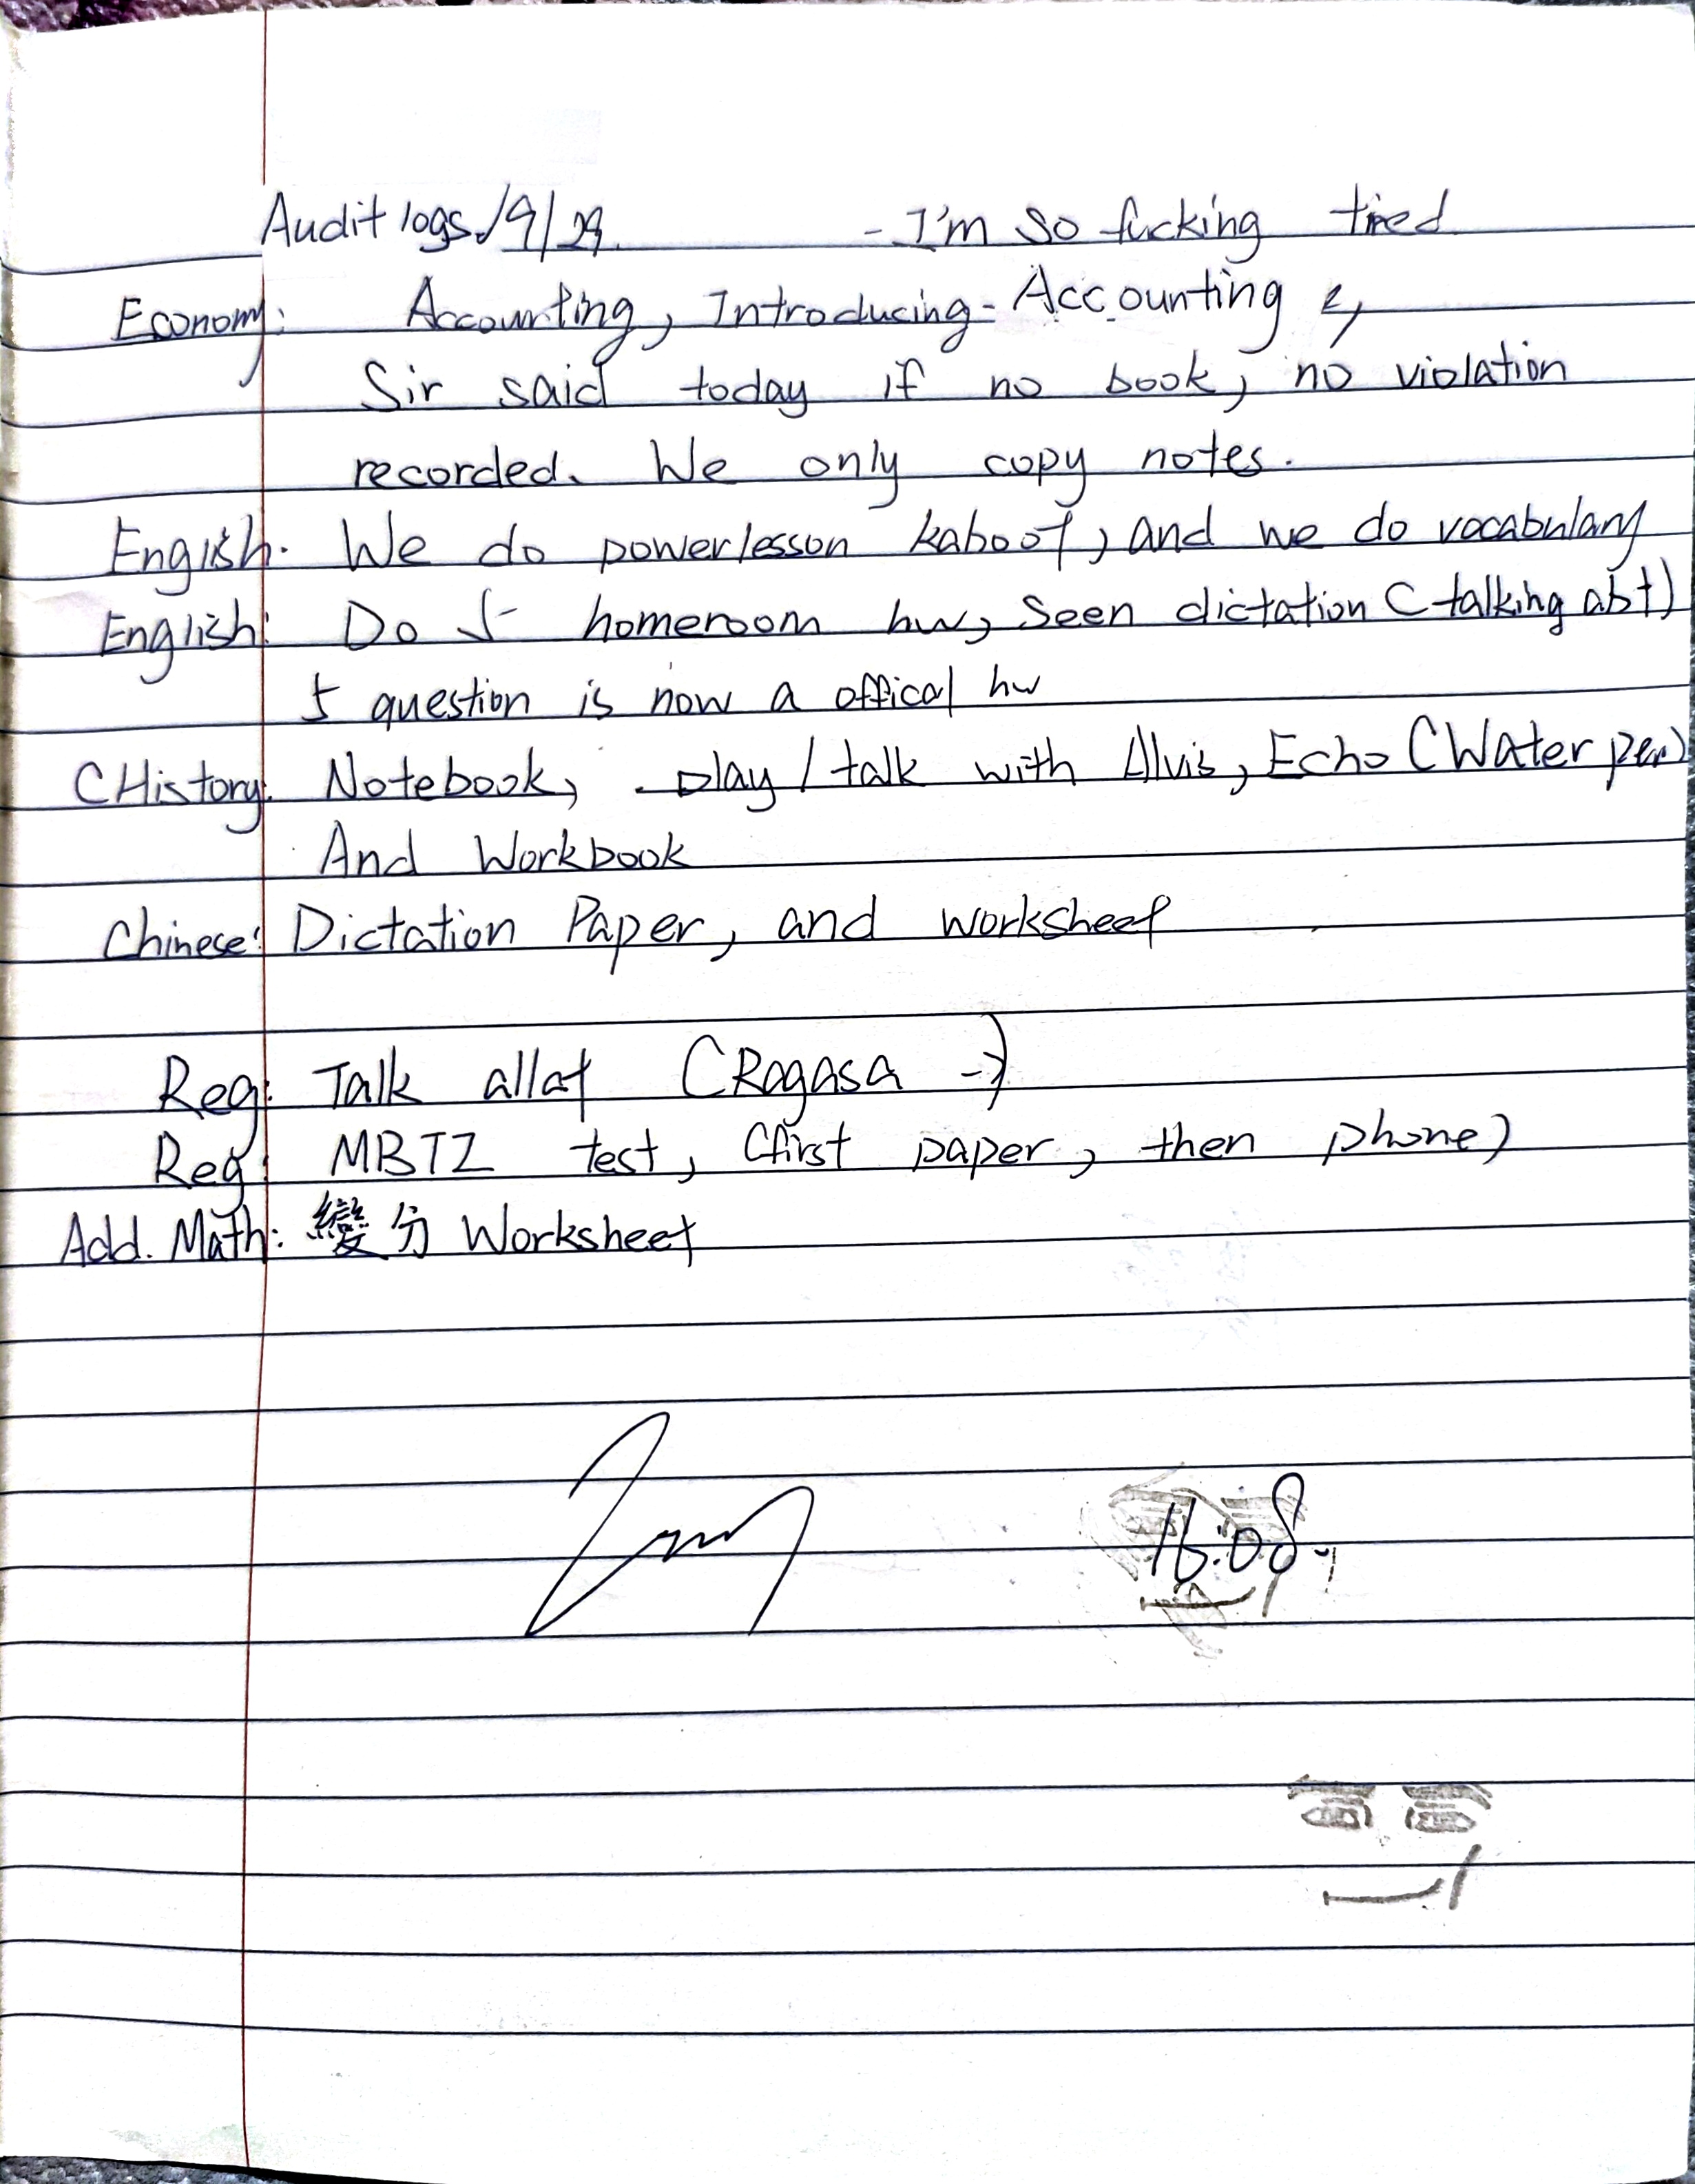 Audit logs /9/29. - I'm so fucking tired
Economy: Accounting, Introducing - Accounting
Sir said today if no book, no violation
recorded. We only copy notes.
Engish. We do powerlesson kahoot, and we do vocabulary
English: Do 5 homeroom hw, Seen dictation (talking abt)
5 question is now a offical hw
CHistory: Notebook, play / talk with Alvis, Echo (Water pen)
And Workbook
Chinese: Dictation Paper, and worksheet
Reg: Talk allat (Ragasa →)
Reg: MBTI test, (first paper, then phone)
Add. Math: 變分 Worksheet
16:08